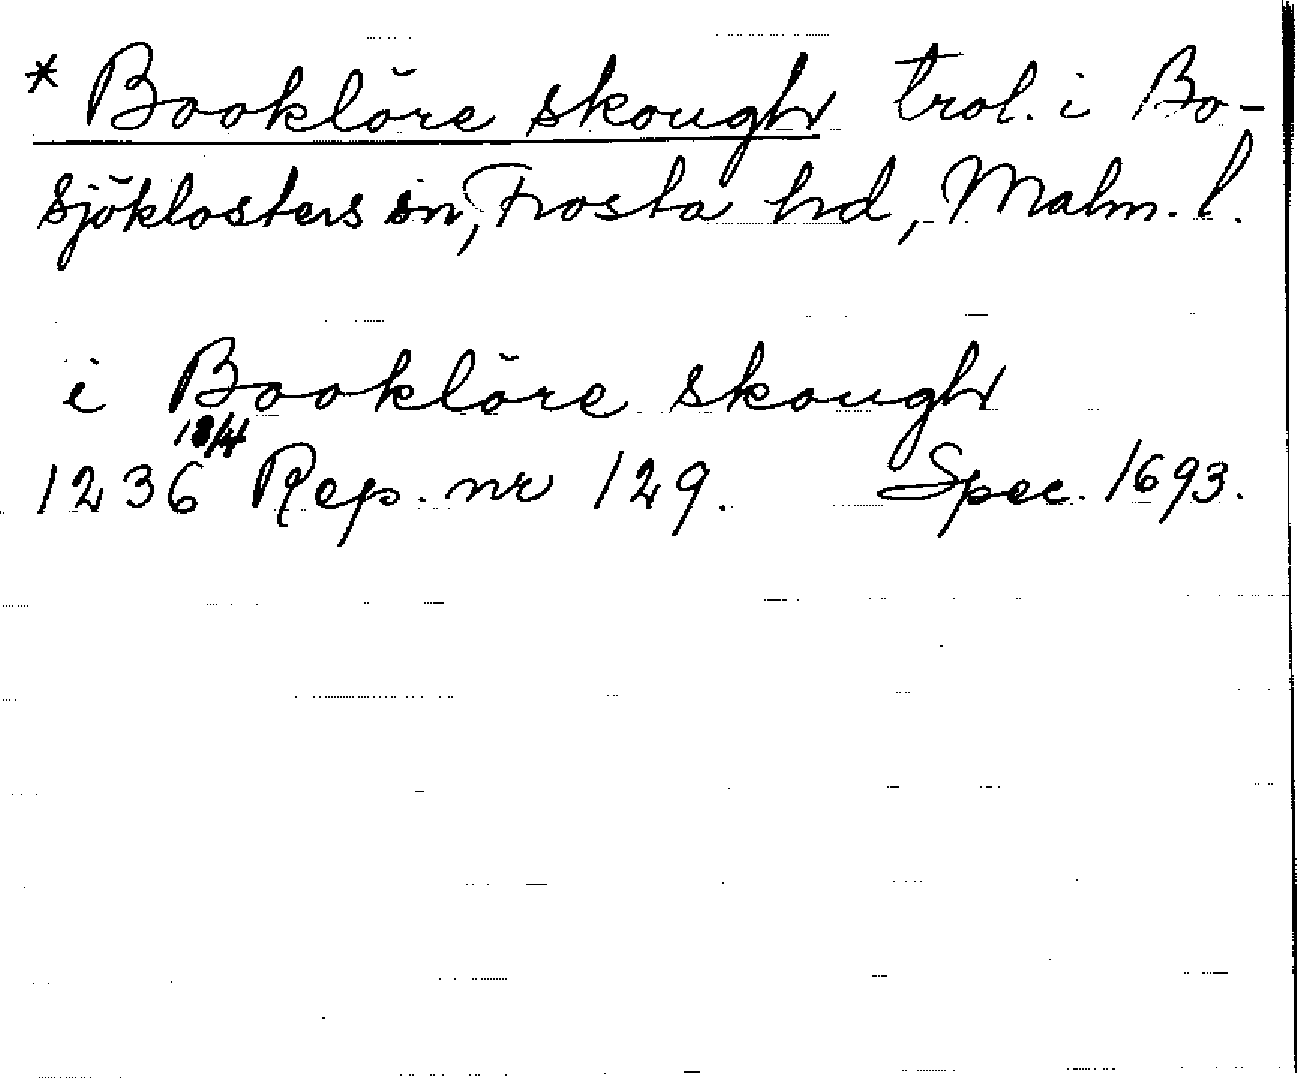 * Bookløre skough trol. i Bo-
sjöklosters sn, Frosta hd, Malm. l.
i Booklöre skough
18/4
1236 Rep. nr 129. Spec. 1693.